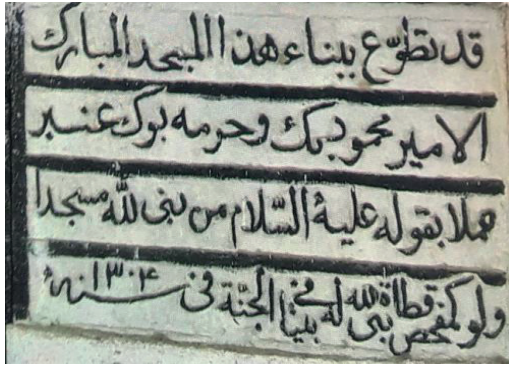 قد تطوّع ببناء هذا المسجد المبارك
الامير محمود بك وحرمه بوك عنبر
عملا بقوله عليه السّلام من بنى لله مسجدا
ولو كمفحص قطاة بنى لله له بيتا فى الجنّة فى سنة ١٣٠٤